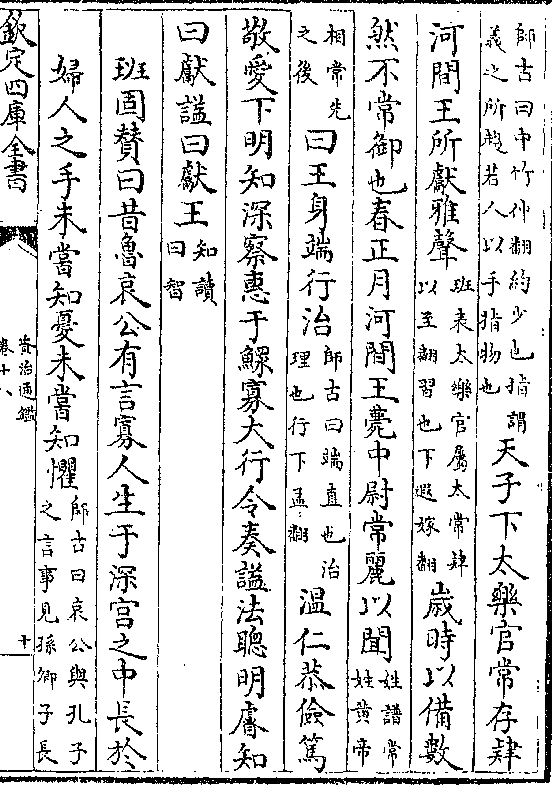 師古曰中竹仲翻約少也指謂
義之所趨若人以手指物也
天子下太樂官常存肄
河間王所獻雅聲
班表太樂官屬太常肄
以至翻習也下遐嫁翻
歲時以備數
然不常御也春正月河間王薨中尉常麗以聞
姓譜常
姓黄帝
相常先
之後
曰王身端行治
師古曰端直也治
理也行下孟翻
温仁恭儉篤
敬愛下明知深察惠于鰥寡大行令奏諡法聰明睿知
曰獻諡曰獻王
知讀
曰智
班固賛曰昔魯哀公有言寡人生于深宫之中長於
婦人之手未嘗知憂未嘗知懼
師古曰哀公與孔子
之言事見孫卿子長
欽定四庫全書
資治通鑑
卷十八
十